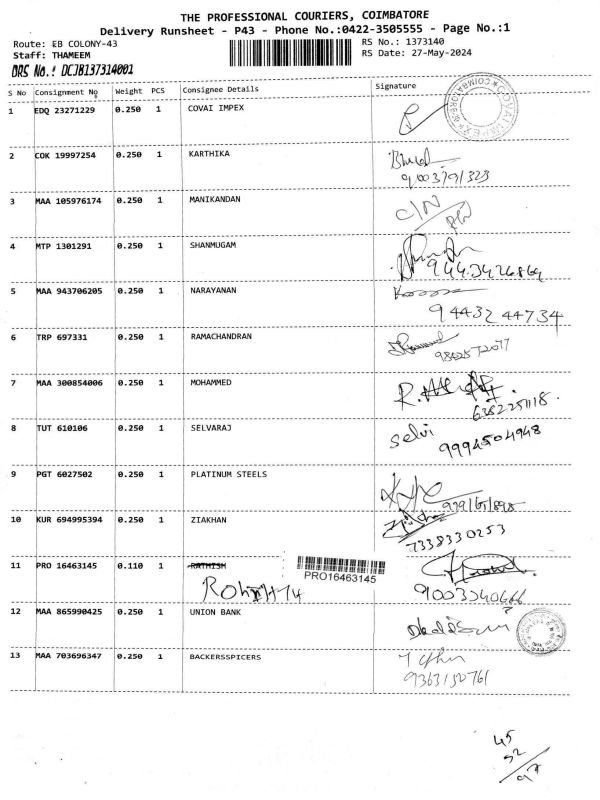 THE PROFESSIONAL COURIERS, COIMBATORE
Delivery Runsheet - P43 - Phone No.:0422-3505555 - Page No.:1
Route: EB COLONY-43 RS No.: 1373140
Staff: THAMEEM RS Date: 27-May-2024
DRS No.: DCJB137314001
S No Consignment No Weight PCS Consignee Details Signature
1 EDQ 23271229 0.250 1 COVAI IMPEX
2 COK 19997254 0.250 1 KARTHIKA
9003791323
3 MAA 105976174 0.250 1 MANIKANDAN
C/N
4 MTP 1301291 0.250 1 SHANMUGAM
9443426864
5 MAA 943706205 0.250 1 NARAYANAN
94432 44734
6 TRP 697331 0.250 1 RAMACHANDRAN
7 MAA 300854006 0.250 1 MOHAMMED
6382251118
8 TUT 610106 0.250 1 SELVARAJ
Selvi 9994504948
9 PGT 6027502 0.250 1 PLATINUM STEELS
10 KUR 694995394 0.250 1 ZIAKHAN
7338330253
11 PRO 16463145 0.110 1 RATHISH
PRO16463145
Rohith
9003240666
12 MAA 865990425 0.250 1 UNION BANK
13 MAA 703696347 0.250 1 BACKERSSPICERS
9363150761
45
52
97